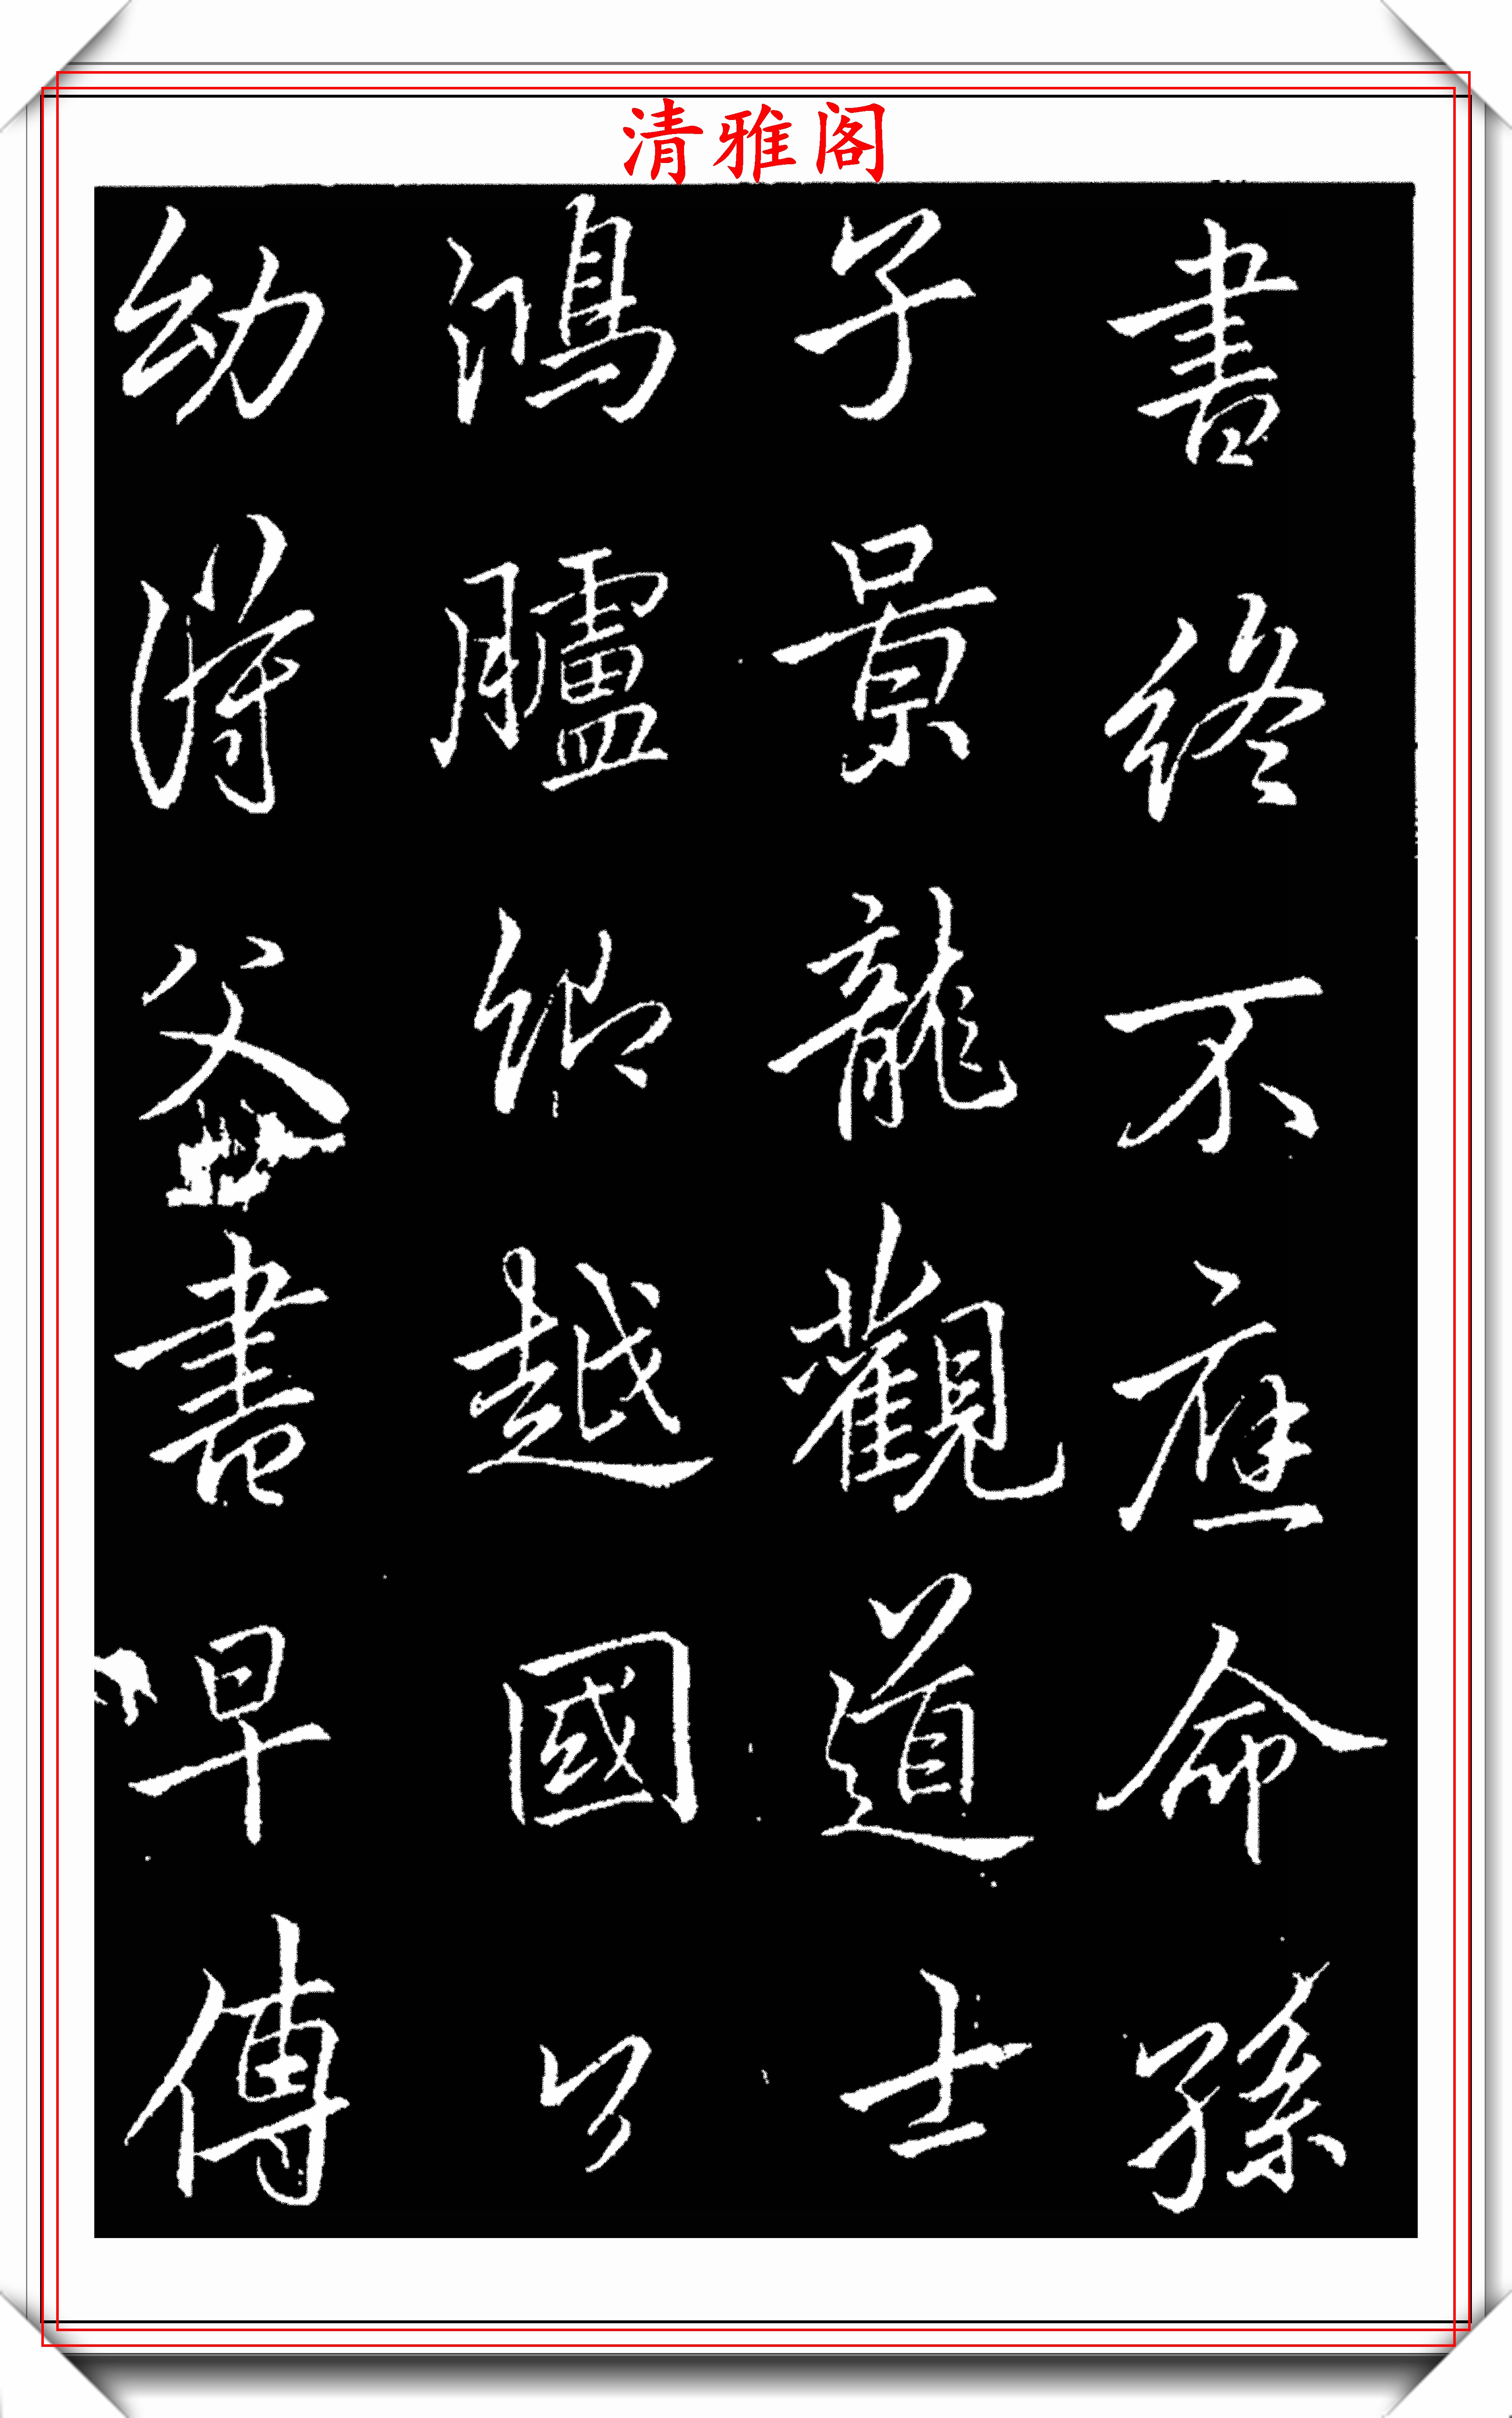 清雅阁
書终不應命孫
子景龍觀道士
鴻臚卿越國公
幼得父書早傳